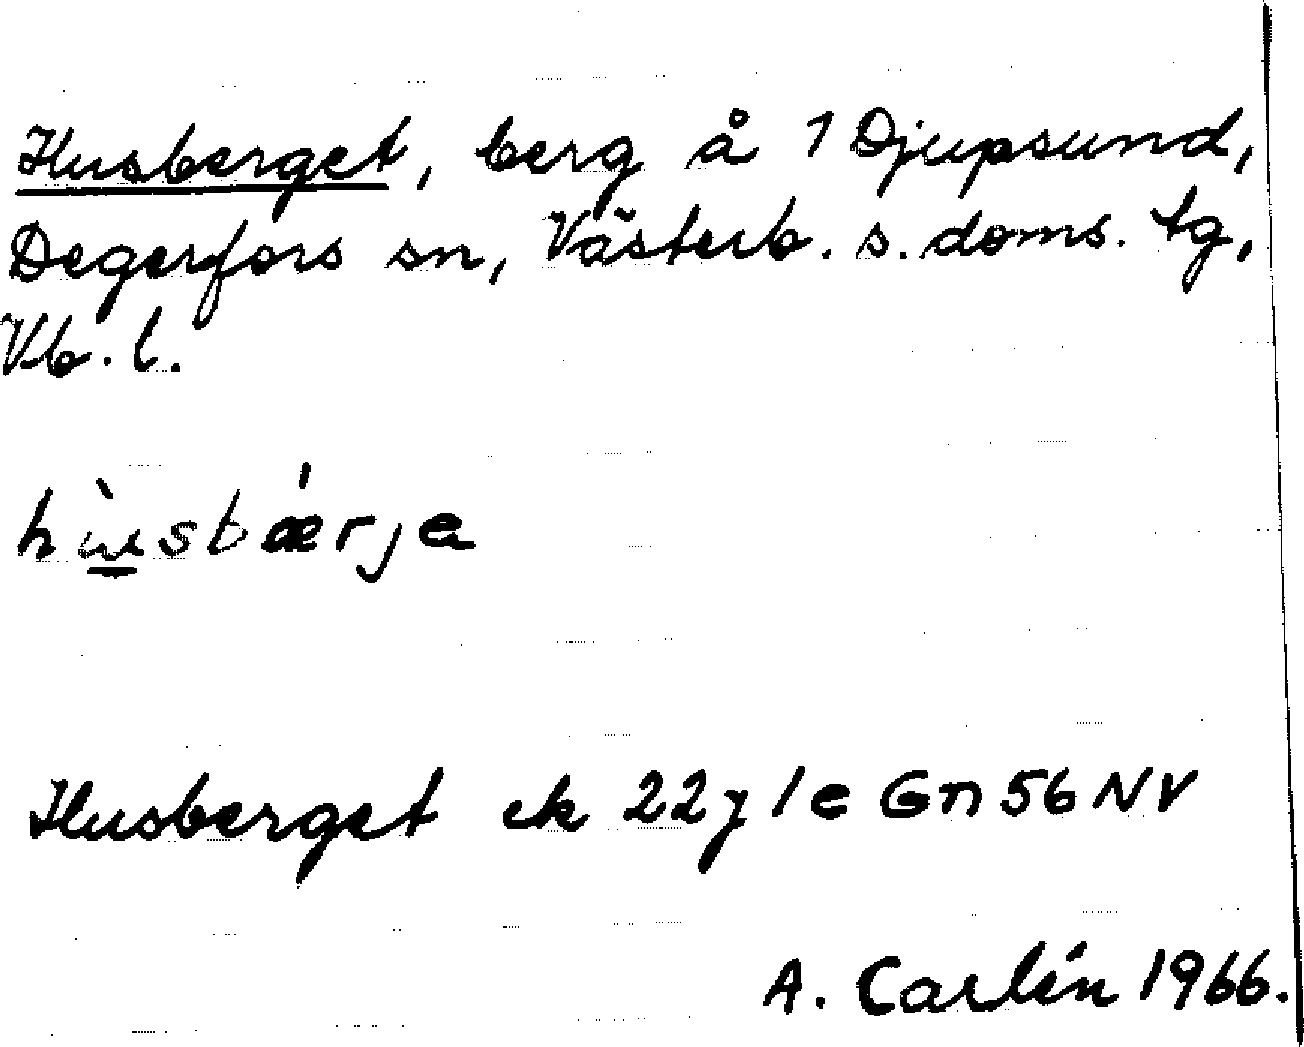 Husberget, berg å 1 Djupsund,
Degerfors sn, Västerb. s. doms. tg,
Vb. l.
hùsbǽrja
Husberget ek 22j 1e Gn 56 NV
A. Carlén 1966.